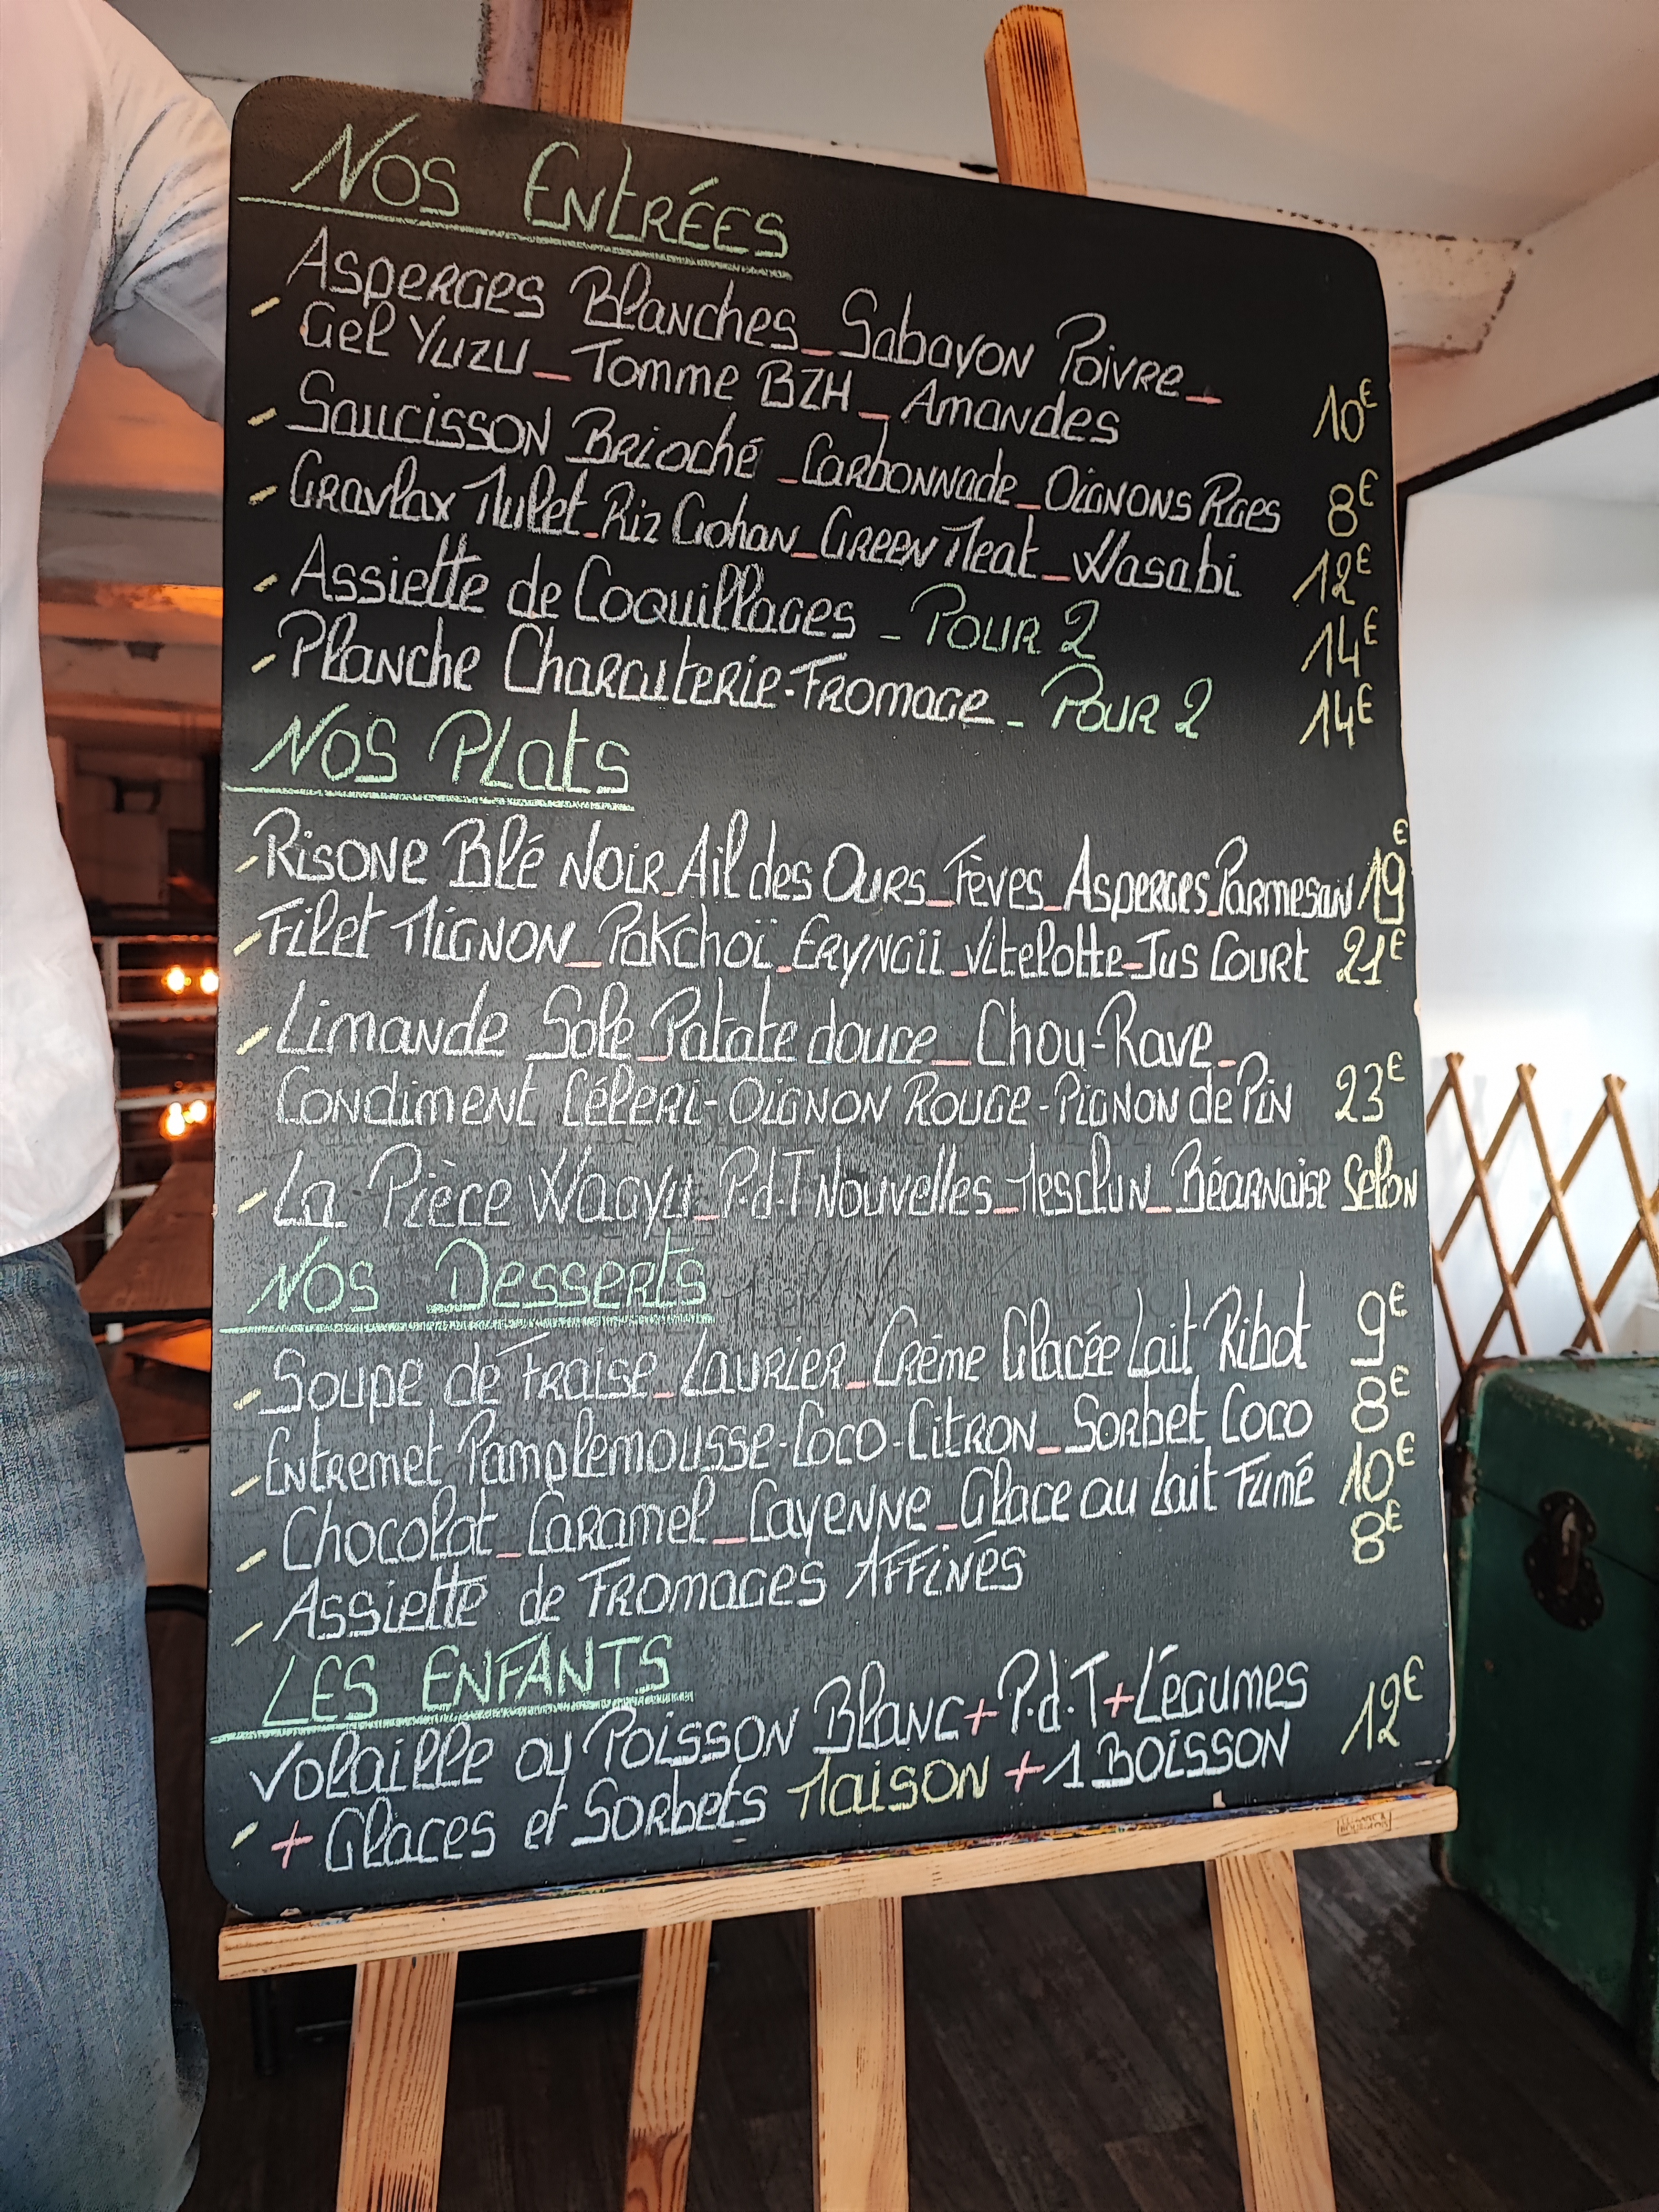 Nos Entrées
- Asperges Blanches _ Sabayon Poivre _
Gel Yuzu _ Tomme BZH _ Amandes 10€
- Saucisson Brioché _ Carbonnade _ Oignons Rges 8€
- Gravlax Mulet _ Riz Gohan _ Green Meat _ Wasabi 12€
- Assiette de Coquillages - Pour 2 14€
- Planche Charcuterie-Fromage - Pour 2 14€
Nos Plats
- Risone Blé Noir _ Ail des Ours _ Fèves _ Asperges _ Parmesan 19€
- Filet Mignon _ Pakchoï _ Eryngii _ Vitelotte _ Jus Court 21€
- Limande Sole _ Patate douce _ Chou-Rave _
Condiment Céleri-Oignon Rouge-Pignon de Pin 23€
- La Pièce Wagyu _ P.d.T Nouvelles _ Mesclun _ Béarnaise Selon
Nos Desserts
- Soupe de Fraise _ Laurier _ Crème Glacée Lait Ribot 9€
- Entremet Pamplemousse-Coco-Citron _ Sorbet Coco 8€
- Chocolat _ Caramel _ Cayenne _ Glace au Lait Fumé 10€
- Assiette de Fromages Affinés 8€
Les Enfants
Volaille ou Poisson Blanc + P.d.T + Légumes 12€
- + Glaces et Sorbets Maison + 1 Boisson